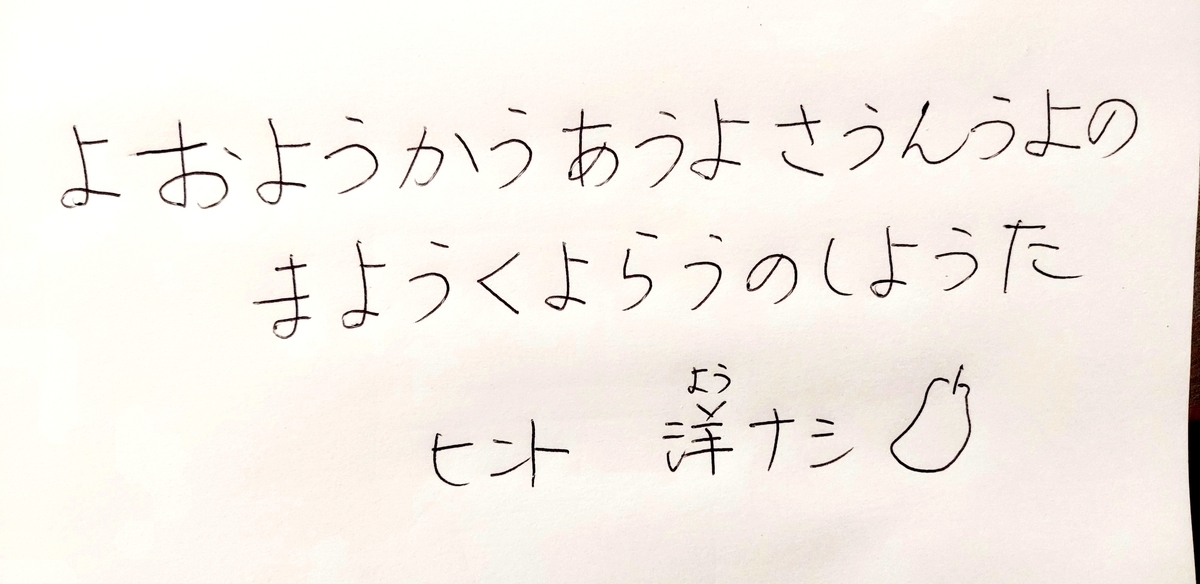 よおようかうあうよさうんうよの
まようくよらうのしようた
ヒント 洋ナシ
よう